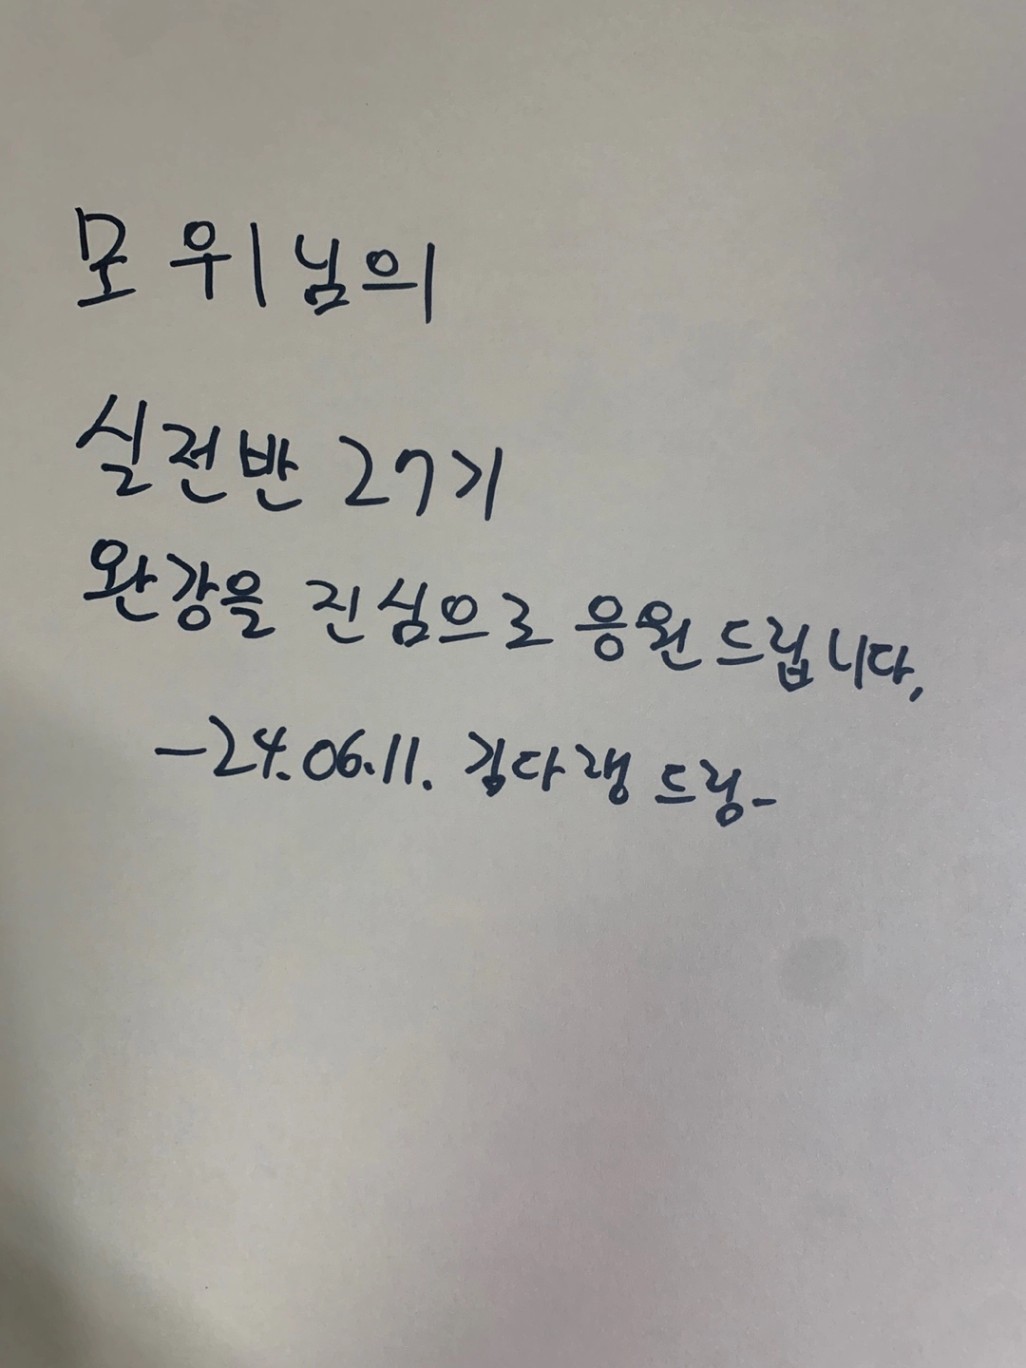 모 위님의
실전반 27기
완강을 진심으로 응원 드립니다.
-24.06.11. 김다랭 드림-